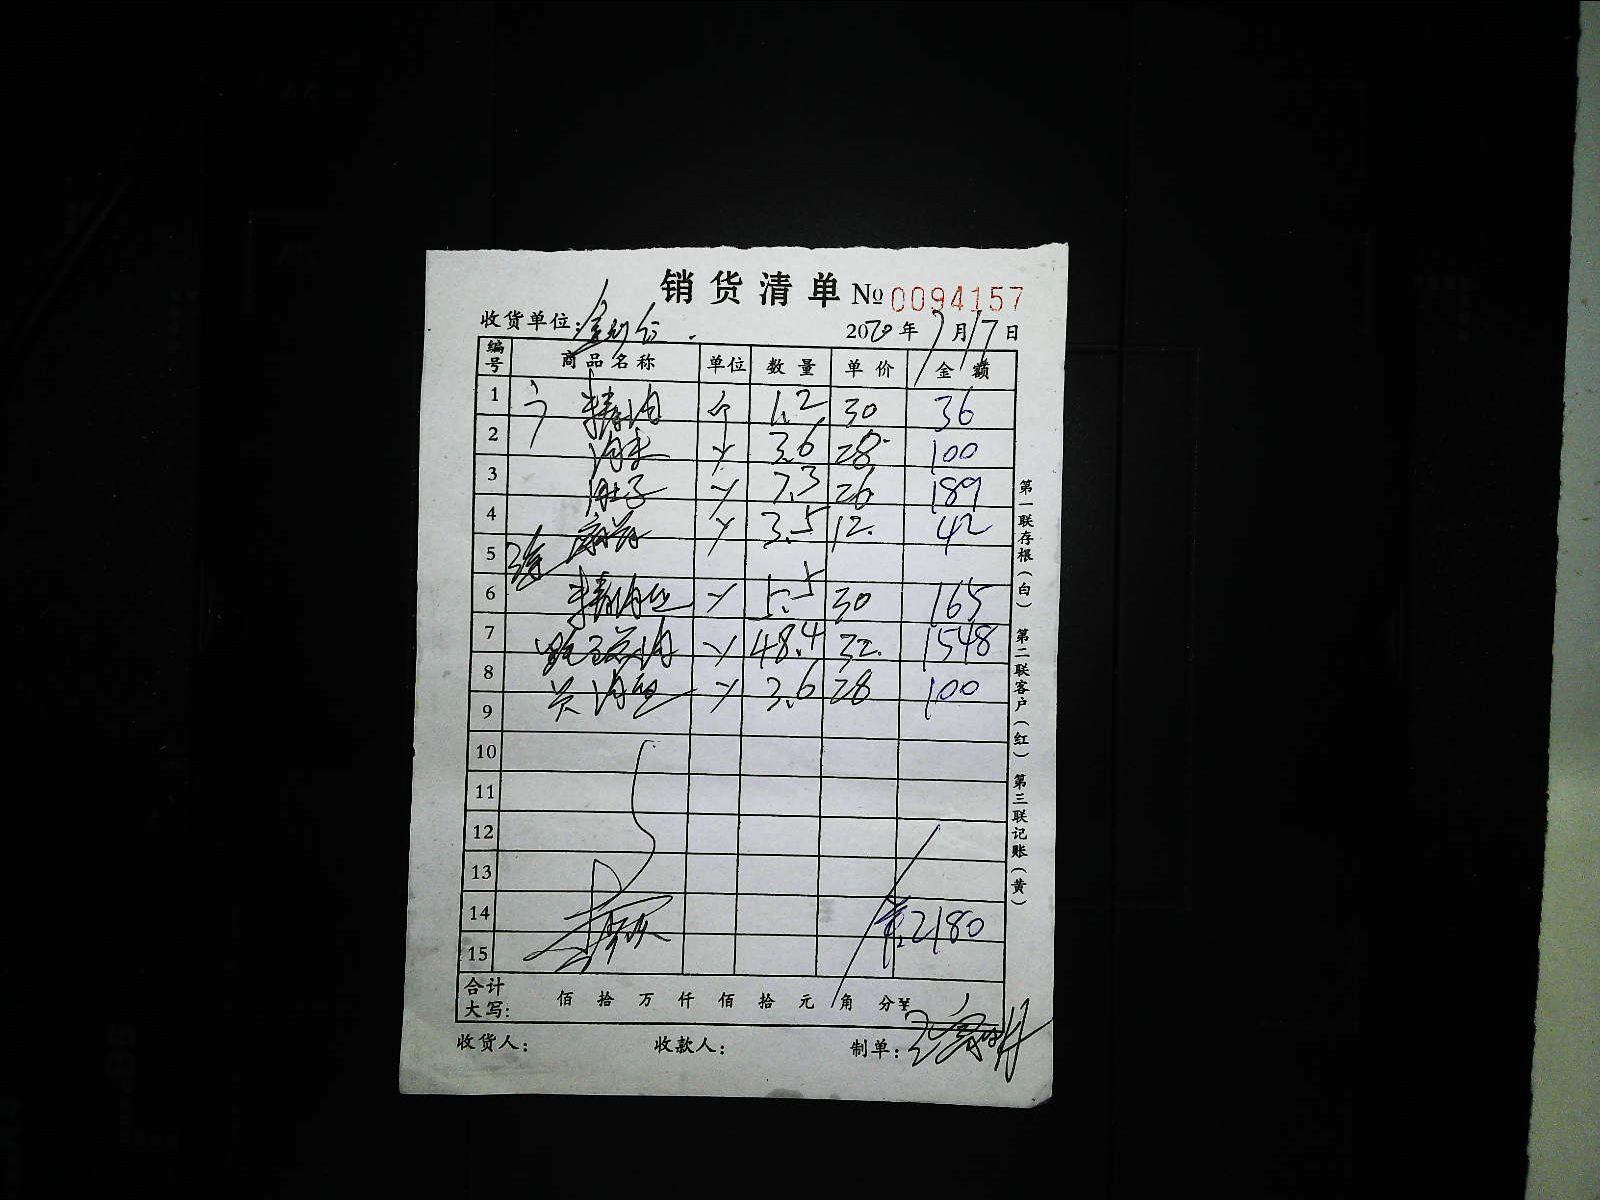 销货清单 № 0094157
收货单位:
2020年7月17日
编号 商品名称 单位 数量 单价 金额
1 精肉 斤 1.2 30 36
2 肉末 〃 3.6 28 100
3 肚子 〃 7.3 26 189
4 〃 3.5 12. 42
5
6 精肉丝 〃 5.5 30 165
7 〃 48.4 32. 1548
8 〃 3.6 28 100
9
10
11
12
13
14 2180
15
合计
大写: 佰 拾 万 仟 佰 拾 元 角 分¥
收货人: 收款人: 制单:
第一联存根(白) 第二联客户(红) 第三联记账(黄)